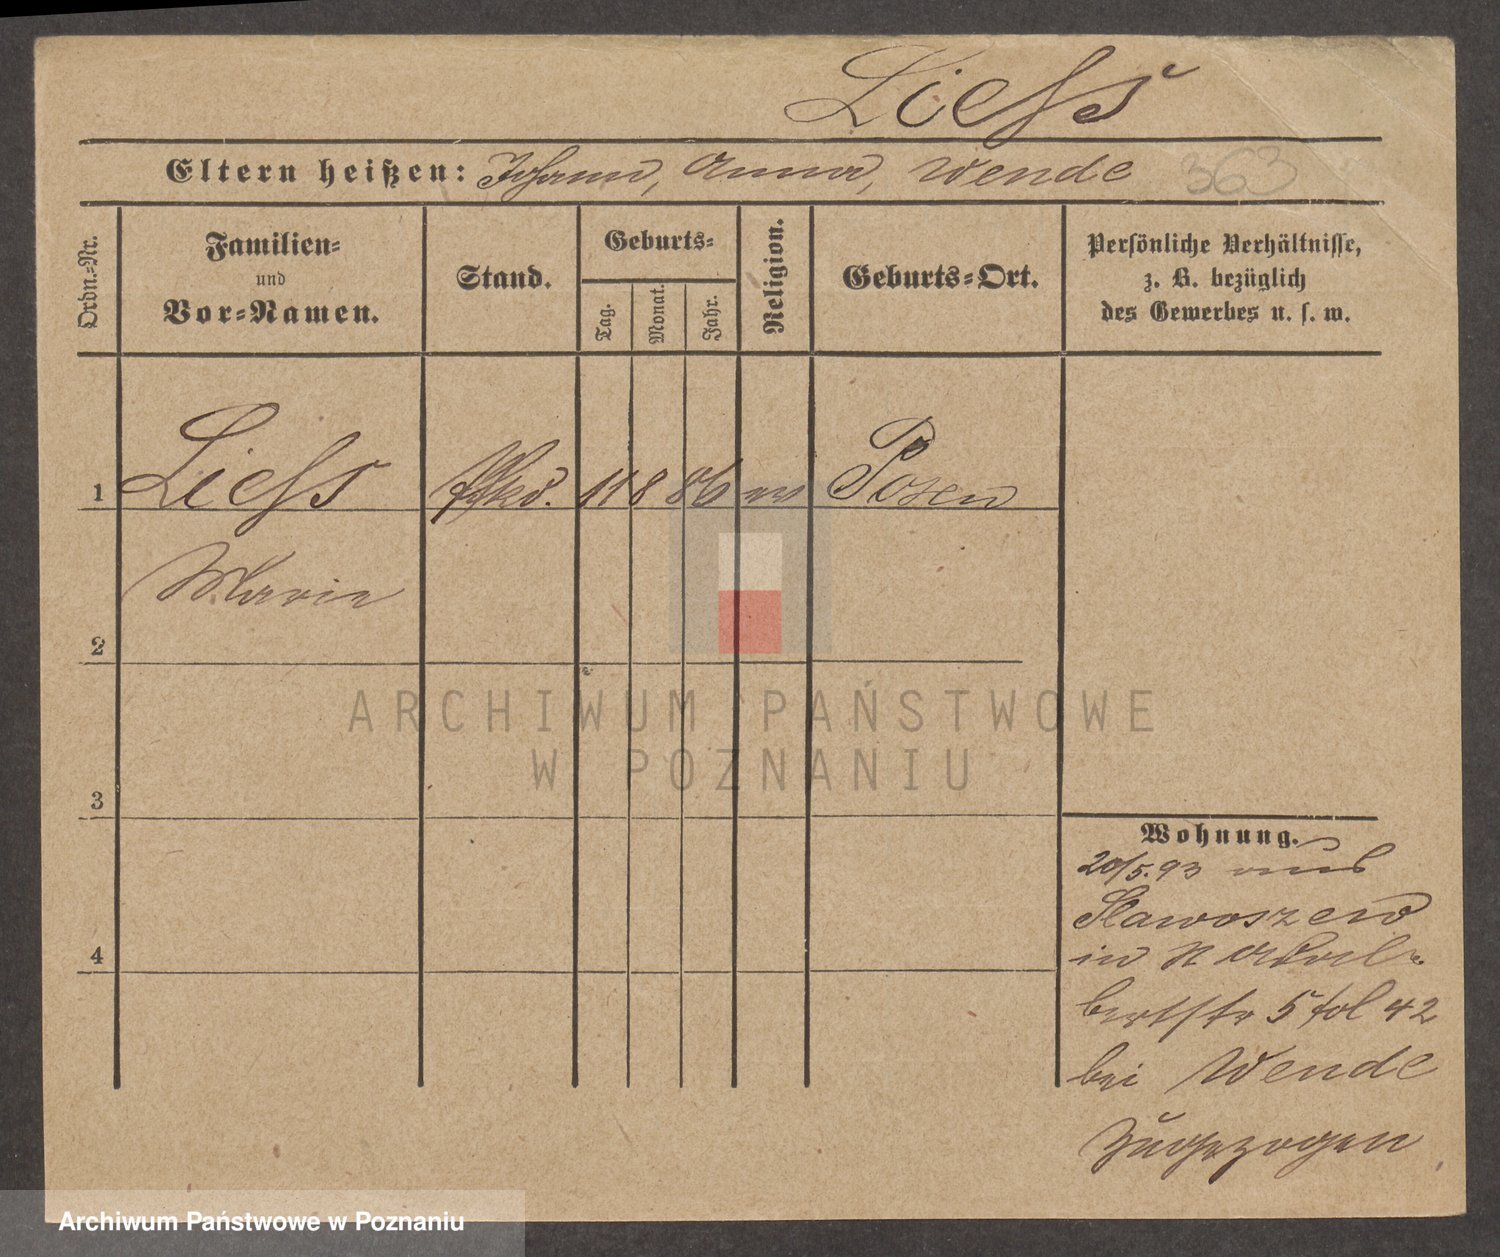 Liefs
Eltern heißen: Johann, Anna, Wende
363
Ordn.-Nr.
Familien-
und
Vor-Namen.
Stand.
Geburts-
Tag.
Monat.
Jahr.
Religion.
Geburts-Ort.
Persönliche Verhältnisse,
z. B. bezüglich
des Gewerbes u. s. w.
1 Liefs 11 8 86 Posen
Marie
2
3
4
Wohnung.
20/5.93 aus
Slawoszew
in
bertstr 5 42
bei Wende
zugezogen
ARCHIWUM PAŃSTWOWE
W POZNANIU
Archiwum Państwowe w Poznaniu